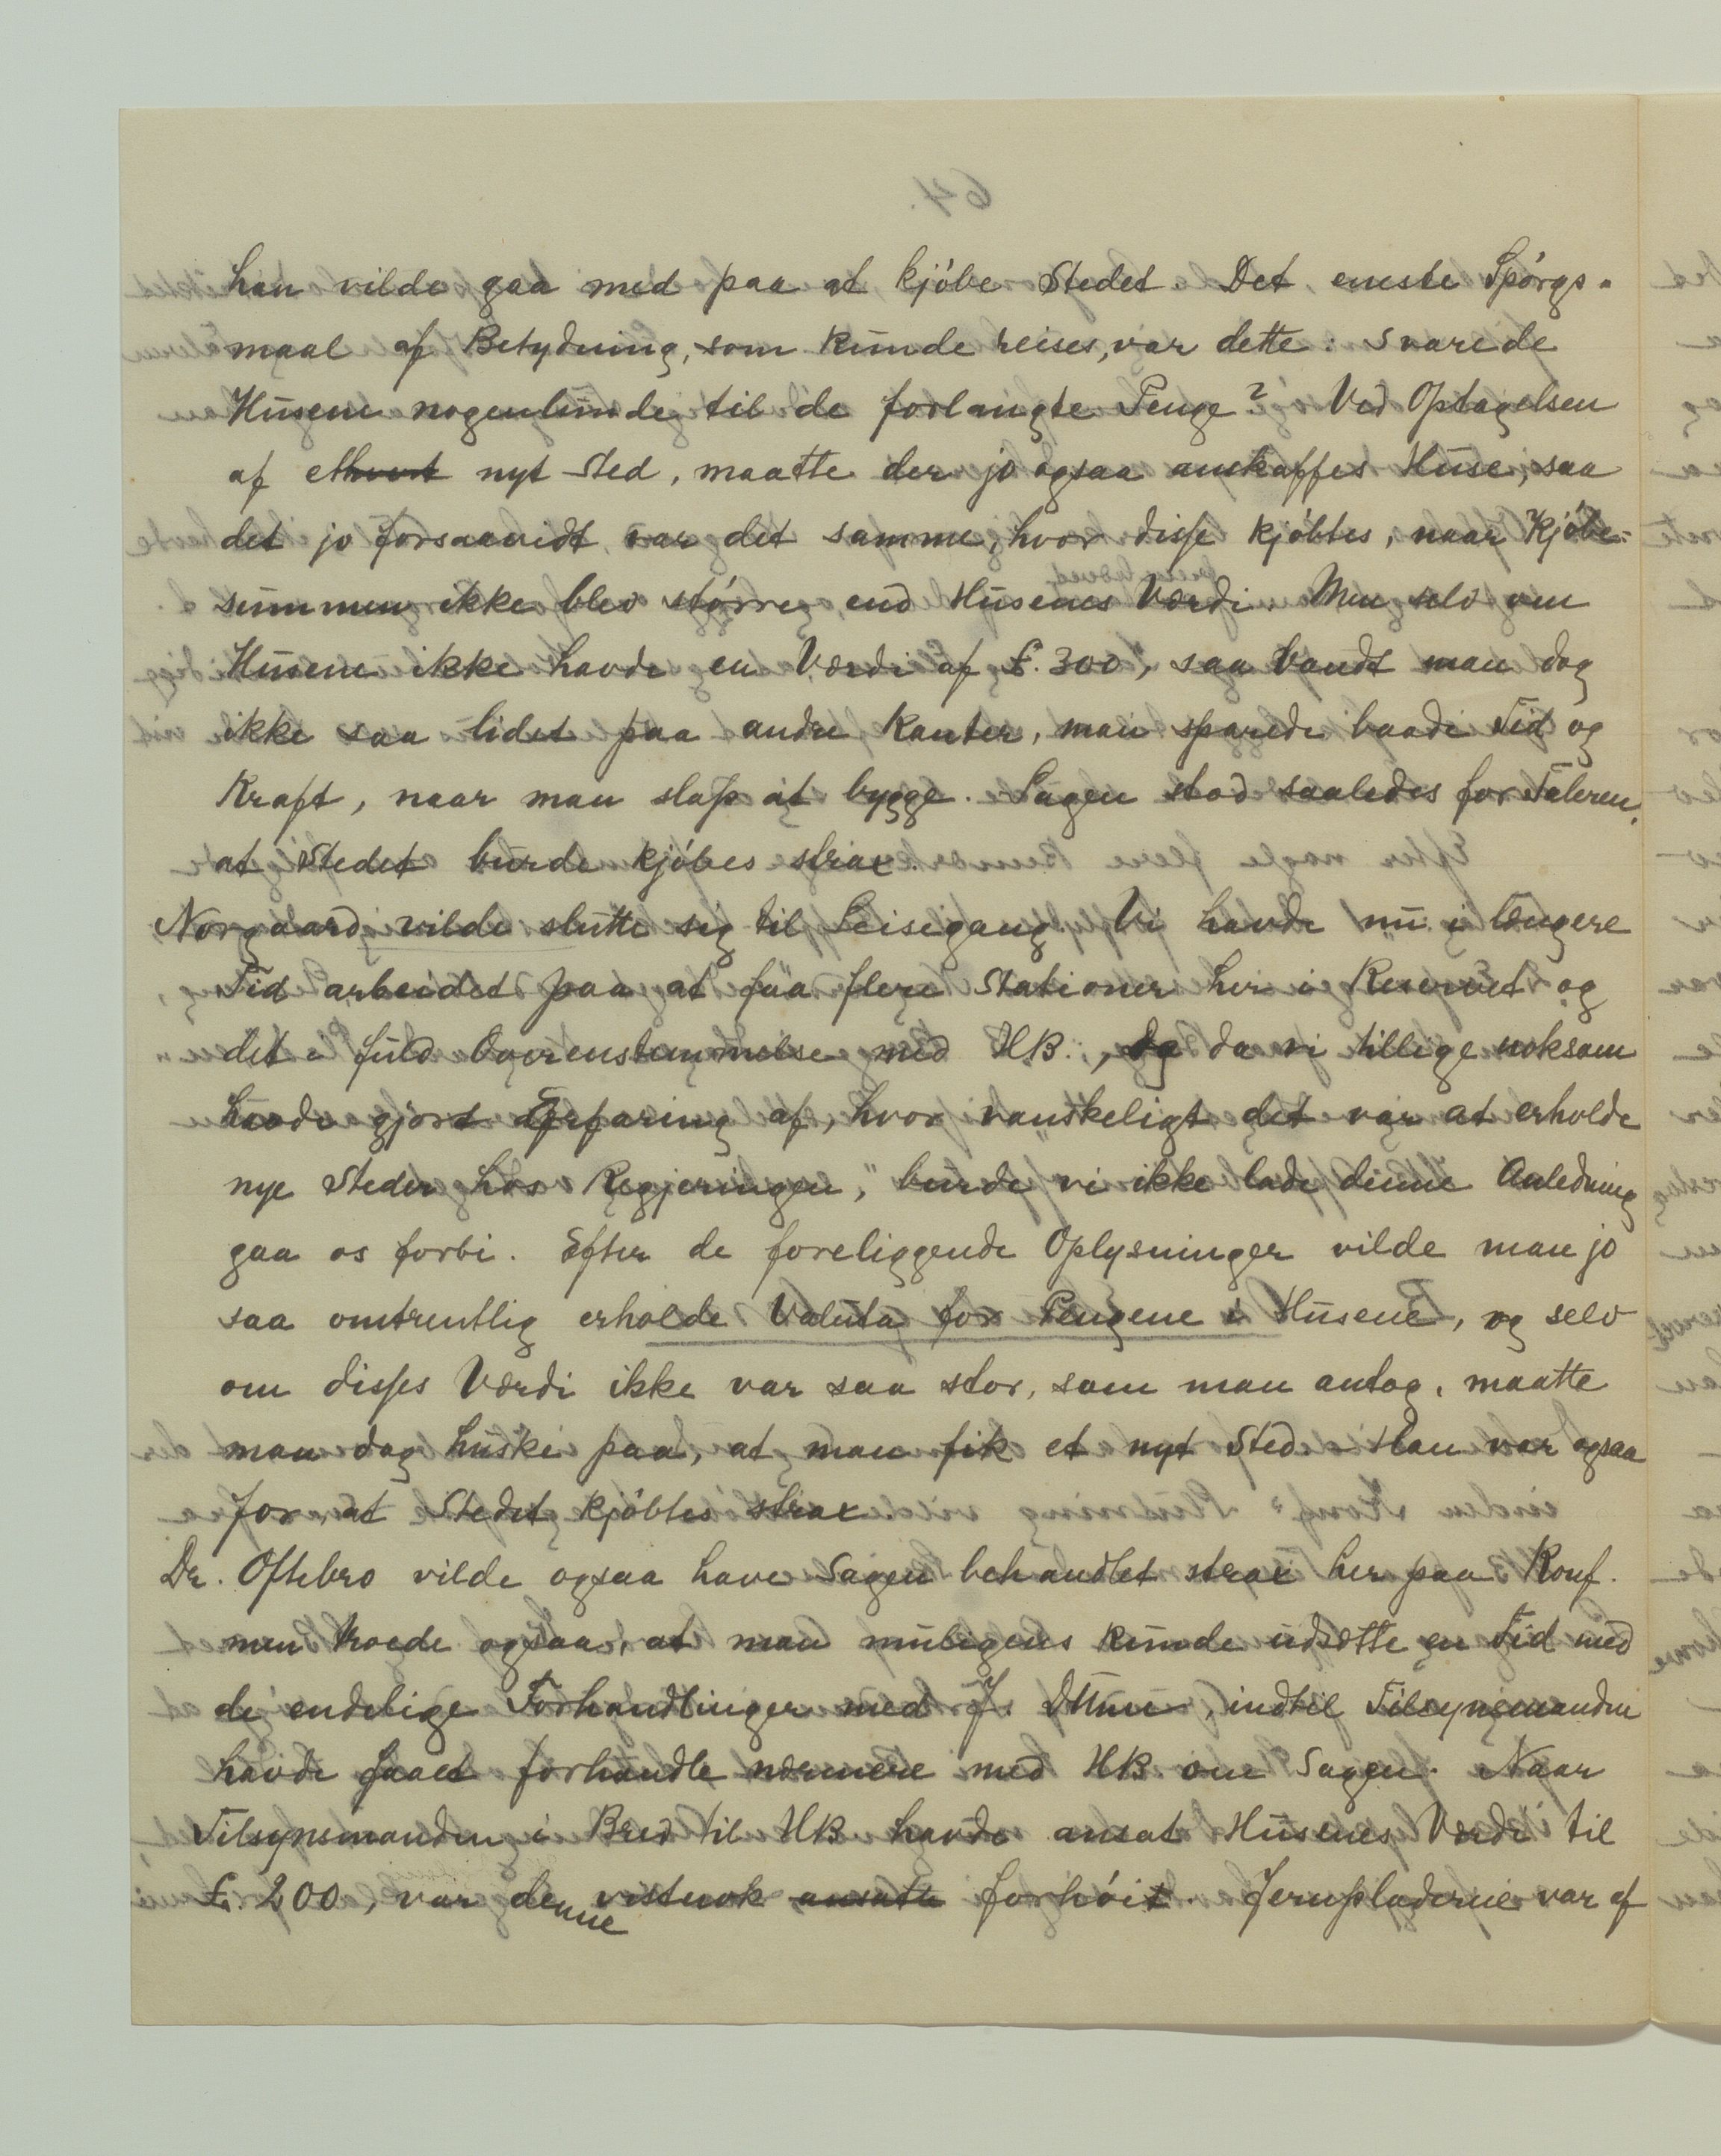 han vilde gaa med paa at kjöbe Stedet. Det eneste Spörgs-
maal af Betydning, som kunde reises, var dette: svarede
Husene nogenlunde til de forlangte Penge? Ved Optagelsen
af ethvert nyt Sted, maatte der jo ogsaa anskaffes Huse, saa
det jo forsaavidt var det samme, hvor disse kjöbtes, naar Kjöbe-
summen ikke blev större, end Husenes Værdi. Men selv om
Husene ikke havde en Værdi af £. 300, saa vandt man dog
ikke saa lidet paa andre Kanter, man sparede baade Tid og
Kraft, naar man slap at bygge. Sagen stod saaledes for Taleren,
at Stedet burde kjöbes strax.
Norgaard vilde slutte sig til Leisegang. Vi havde nu i længere
Tid arbeidet paa at faa flere Stationer her i Reservet og
det i fuld Overenstemmelse med HB., og da vi tillige noksom
havde gjort Erfaring af, hvor vanskeligt det var at erholde
nye Steder hos Regjeringen, burde vi ikke lade denne Anledning
gaa os forbi. Efter de foreliggende Oplysninger vilde man jo
saa omtrentlig erholde Valuta for Pengene i Husene, og selv
om disses Værdi ikke var saa stor, som man antog, maatte
man dog huske paa, at man fik et nyt Sted. Han var ogsaa
for, at Stedet kjöbtes strax.
Dr. Oftebro vilde ogsaa have Sagen behandlet strax her paa Konf.
men troede ogsaa, at man muligens kunde udsætte en Tid med
de endelige Forhandlinger med J. , indtil Tilsynsmanden
havde faaet forhandle nærmere med HB om Sagen. Naar
Tilsynsmanden i Brev til HB havde ansat Husenes Værdi til
£. 200, var denne vistnok ansatte forhöit. Jernpladerne var af